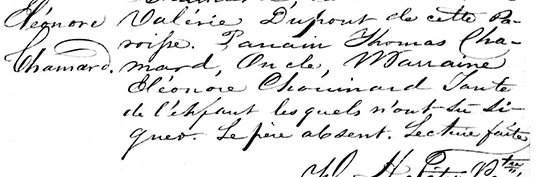 Eléonore Valérie Dupont de cette Pa-
roisse. Parrain Thomas Cha-
Chamard. mard, Oncle, Marraine
Eléonore Chouinard Tante
de l'enfant lesquels n'ont su si-
gner. Le père absent. Lecture faite
Ptre